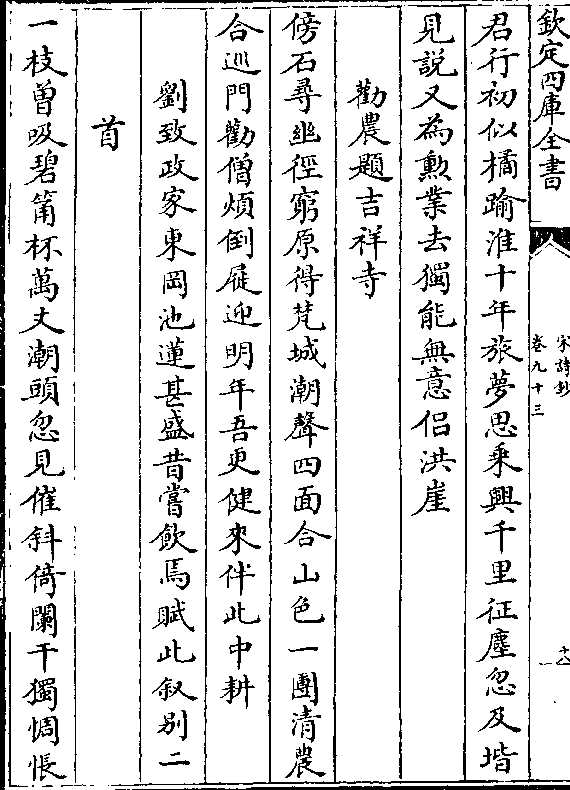 欽定四庫全書
宋詩鈔
卷九十三
十八
君行初似橘踰淮十年旅夢思乗興千里征塵忽及堦
見說又為勲業去獨能無意侣洪崖
勸農題吉祥寺
傍石尋幽徑窮原得梵城潮聲四面合山色一團清農
合巡門勸僧煩倒屣迎明年吾更健來伴此中耕
劉致政家東岡池蓮甚盛昔嘗飲焉賦此叙别二
首
一枝曽吸碧筩杯萬丈潮頭忽見催斜倚闌干獨惆悵